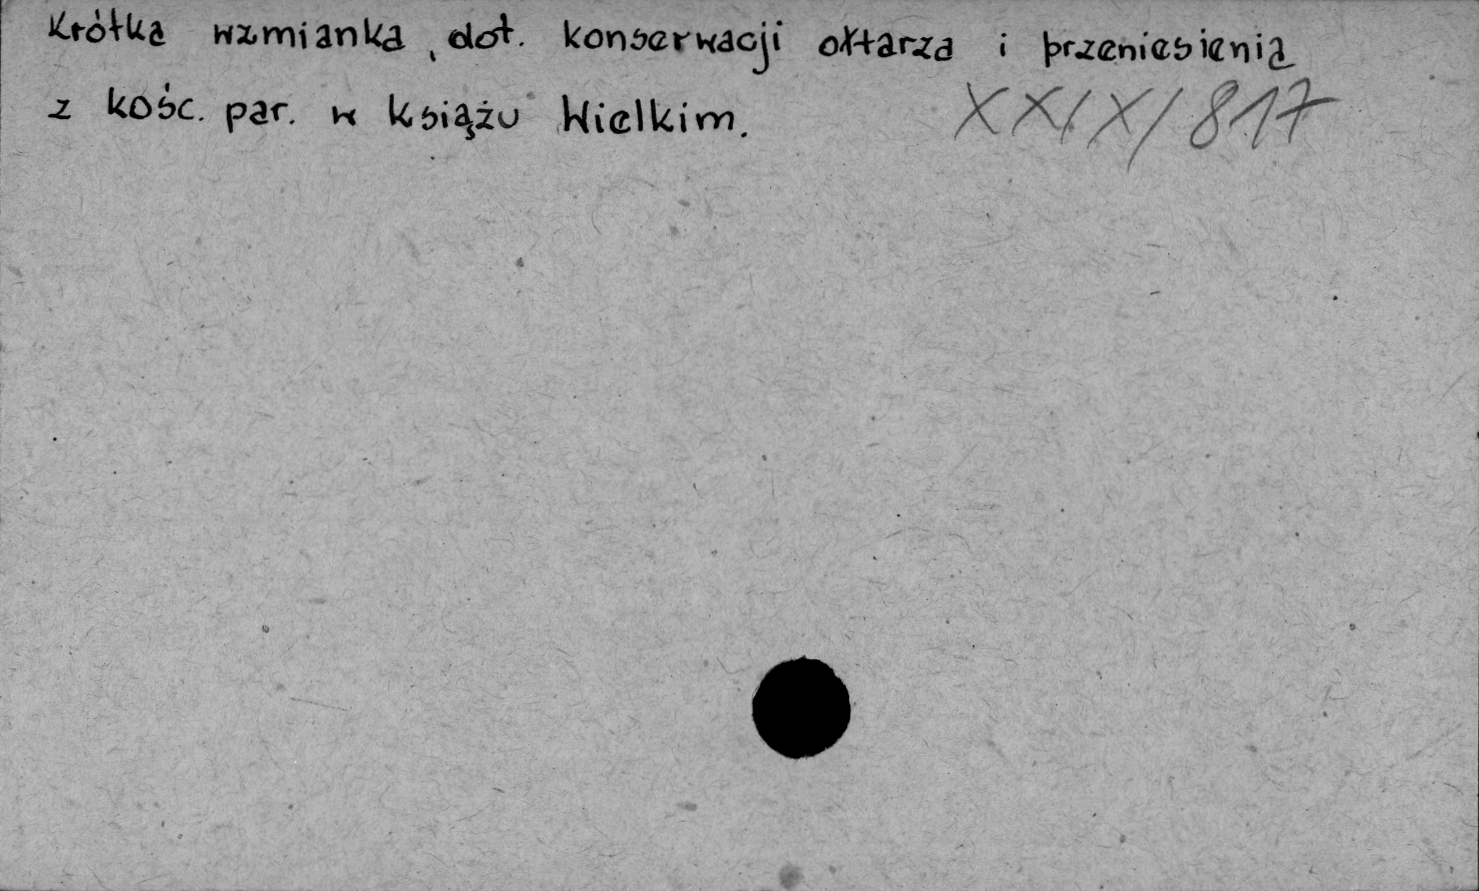 Krótka wzmianka, dot. konserwacji ołtarza i przeniesienia
z kośc. par. w Książu Wielkim. XXIX/817